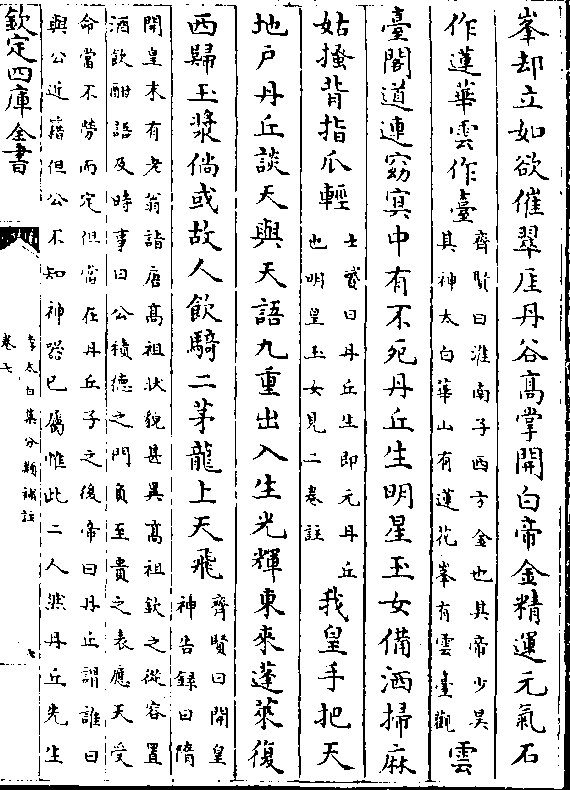 峯却立如欲催翠厓丹谷髙掌開白帝金精運元氣石
作蓮華雲作臺齊賢曰淮南子西方金也其帝少昊其神太白華山有蓮花峯有雲臺觀雲
臺閣道連窈冥中有不死丹丘生明星玉女備洒掃麻
姑搔背指爪輕士贇曰丹丘生即元丹丘也明皇玉女見二卷註我皇手把天
地户丹丘談天與天語九重出入生光輝東來蓬萊復
西歸玉漿倘或故人飲騎二茅龍上天飛齊賢曰開皇神告録曰隋
開皇末有老翁詣唐髙祖狀貌甚異髙祖欽之從容置
酒飲酣語及時事曰公積德之門負至貴之表應天受
命當不勞而定但當在丹丘子之後帝曰丹丘謂誰曰
與公近籍但公不知神器已屬惟此二人然丹丘先生
欽定四庫全書
李太白集分類補註
卷七
七